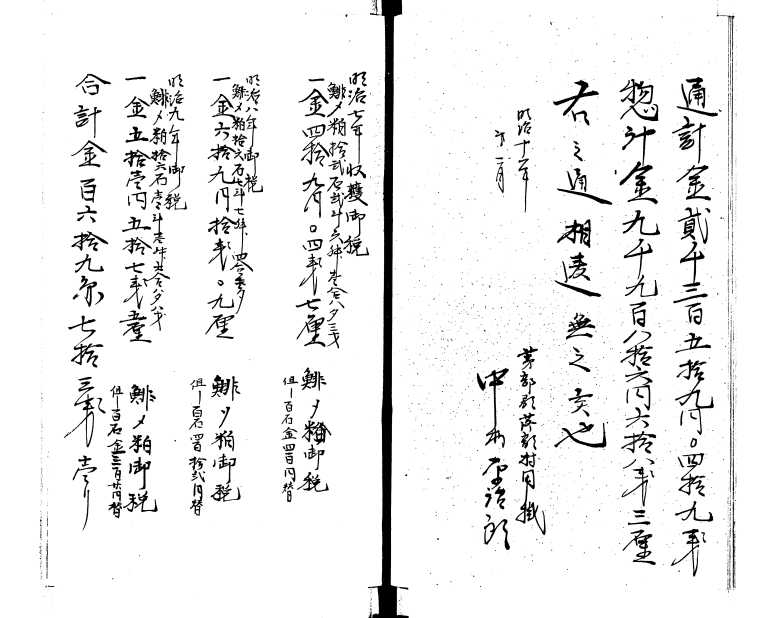 通計金貳千三百五拾九円〇四拾九銭
惣計金九千九百八拾六円六拾八銭三厘
右之通相違無之候也
明治十一年
第一月
茅部郡落部村同掛
中村
明治七年収獲御税
鯡〆粕拾弐石弐斗六舛壱合八夕三才
一金四拾九円〇四銭七厘
鯡〆粕御税
但シ百石金四百円替
明治八年御税
鯡〆粕拾六石七斗七舛四合
一金六拾九円拾銭〇九厘
鯡〆粕御税
但シ百石四百拾弐円替
明治九年御税
鯡〆粕拾六石壱斗壱舛五合八夕八才
一金五拾壱円五拾七銭五厘
鯡〆粕御税
但シ百石金三百廿円替
合計金百六拾九条七拾三銭壱リ